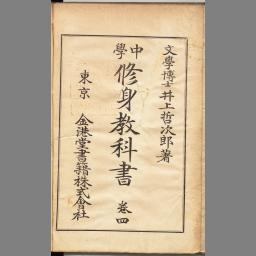 文學博士井上哲次郎著
中學修身教科書 卷四
東京 金港堂書籍株式會社